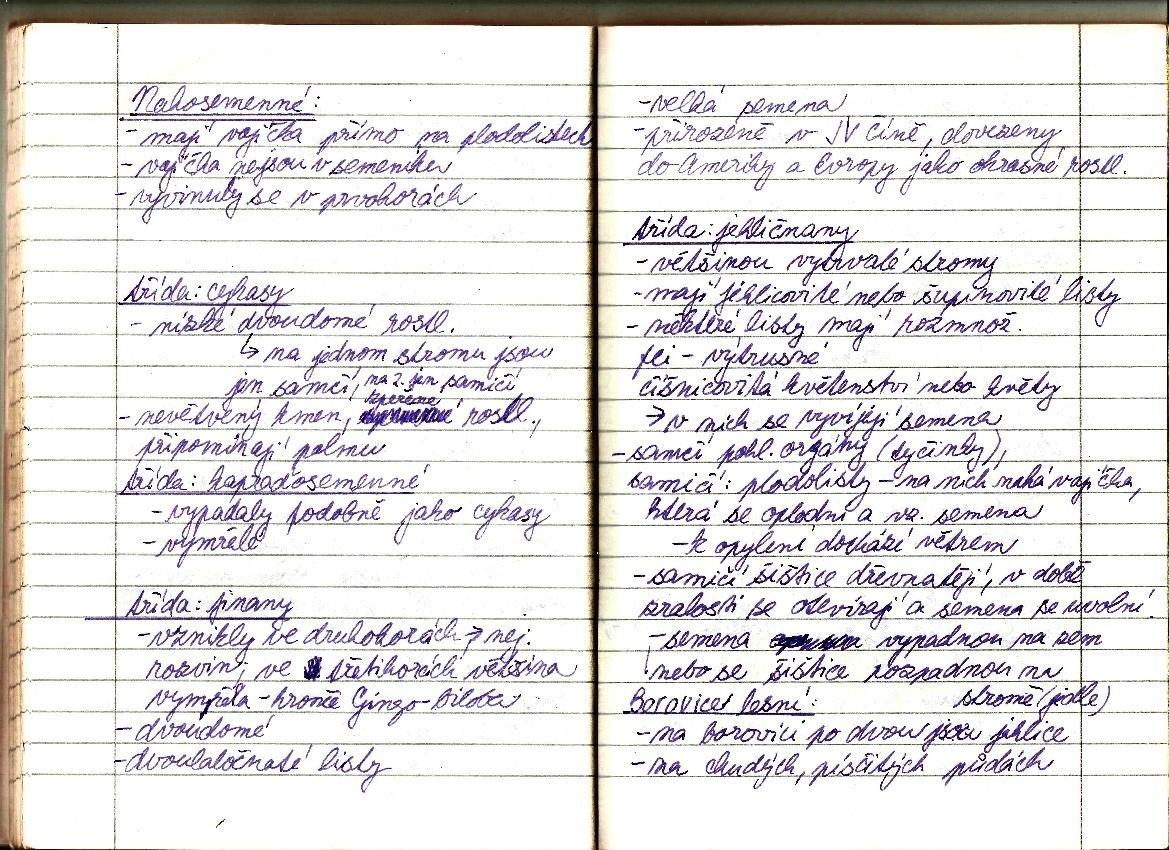 Nahosemenné:
- mají vajíčka přímo na plodolistech
- vajíčka nejsou v semeníku
- vyvinuly se v prvohorách
třída: cykasy
- nízké dvoudomé rostl.
↳ na jednom stromu jsou
jen samčí, na 2. jen samičí
- nevětvený kmen, zpeřené rostl.,
připomínají palmu
třída: kapraďosemenné
- vypadaly podobně jako cykasy
- vymřelé
třída: jinany
- vznikly ve druhohorách → nej.
rozvin; ve třetihorách většina
vymřela - kromě Gingo-biloba
- dvoudomé
- dvoulaločnaté listy
- velká semena
- přirozeně v JV číně, dovezeny
do Ameriky a Evropy jako okrasné rostl.
třída: jehličnany
- většinou vytrvalé stromy
- mají jehlicovité nebo šupinovité listy
- některé listy mají rozmnož.
fci - výtrusné
číšnicovitá květenství nebo květy
→ v nich se vyvíjejí semena
- samčí pohl. orgány (tyčinky),
samičí: plodolisty - na nich nahá vajíčka,
která se oplodní a vz. semena
- k opylení dochází větrem
- samičí šištice dřevnatějí, v době
zralosti se otevírají a semena se uvolní
- semena vypadnou na zem
nebo se šištice rozpadnou na
stromě (jedle)
Borovice lesní:
- na borovici po dvou jsou jehlice
- na chudých, písčitých půdách